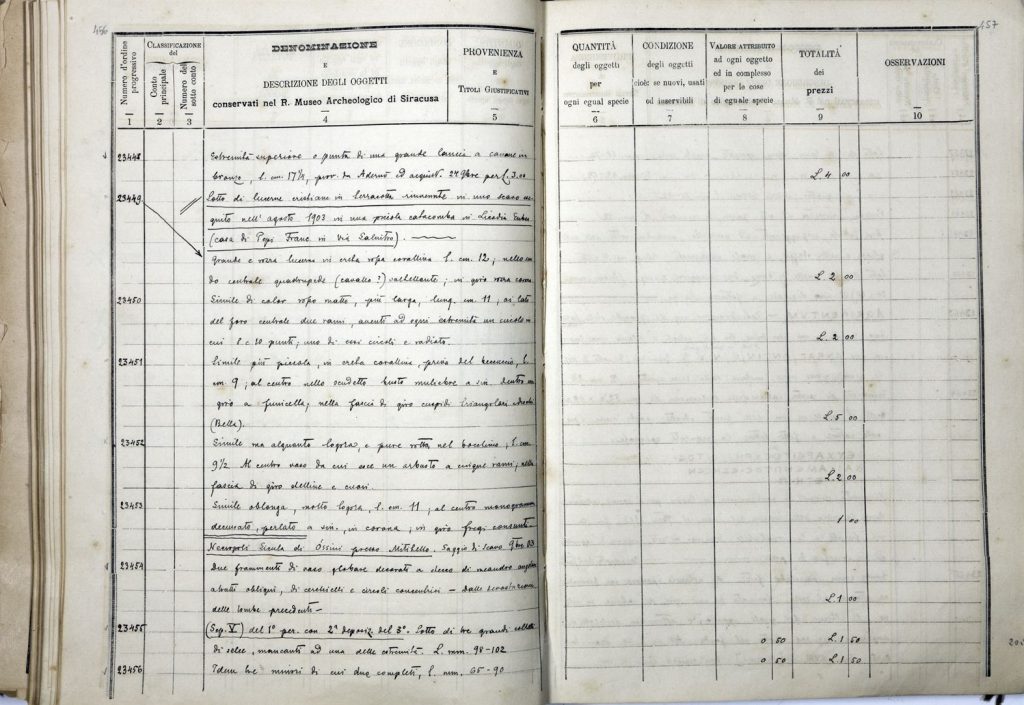 456
Numero d'ordine progressivo
CLASSIFICAZIONE del
Conto principale
Numero del sotto conto
DENOMINAZIONE
E
DESCRIZIONE DEGLI OGGETTI
conservati nel R. Museo Archeologico di Siracusa
PROVENIENZA
E
TITOLI GIUSTIFICATIVI
1 2 3 4 5
23448 Estremità superiore o punta di una grande lancia a cannone in
bronzo, l. cm. 17½, prov. da Adernò ed acquist. 24 9bre per L. 3.00
23449 Lotto di lucerne cristiane in terracotta rinvenute in uno scavo
guito nell' agosto 1903 in una piccola catacomba in Licodia Eubea
(casa di Pepi Franc. in Via Salnitro).
Grande e rozza lucerna in creta rossa corallina l. cm. 12; nello
do centrale quadrupede (cavallo?) ; in giro rozza corona
23450 Simile di color rosso matto, più larga, lung. cm. 11, ai lati
del foro centrale due rami, aventi ad ogni estremità un circolo
cui 8 e 10 punti; uno di essi circoli è radiato.
23451 Simile più piccola, in creta corallina, priva del beccuccio, l.
cm. 9; al centro nello scudetto busto muliebre a sin. dentro
giro a funicella; nella fascia di giro cuspidi triangolari
(Bella).
23452 Simile ma alquanto logora, e pure rotta nel beccuccio, l. cm.
9½ Al centro vaso da cui esce un arbusto a cinque rami; nella
fascia di giro stelline e cuori.
23453 Simile oblonga, molto logora, l. cm. 11; al centro monogramma
decussato, perlato a sin., in corona; in giro fregi consunti
Necropoli Sicula di Ossini presso Mitibello. Saggio di scavo 9bre 03
23454 Due frammenti di vaso globare decorati a stecco di meandro
a tratti obliqui, di cerchielli e circoli concentrici — Dalla devastazione
delle tombe precedenti —
23455 (Sep. V) del 1° per. con 2ª deposiz. del 3°. Lotto di tre grandi coltelli
di selce, mancanti ad una delle estremità. L. mm. 98-102
23456 Idem tre minori di cui due completi, l. mm. 65-90
457
QUANTITÀ
degli oggetti
per
ogni egual specie
CONDIZIONE
degli oggetti
cioè: se nuovi, usati
od inservibili
VALORE ATTRIBUITO
ad ogni oggetto
ed in complesso
per le cose
di eguale specie
TOTALITÀ
dei
prezzi
OSSERVAZIONI
6 7 8 9 10
L. 4 00
L. 2 00
L. 2 00
L. 5 00
L. 2 00
1 00
L. 1 00
0 50 L. 1 50
0 50 L. 1 50